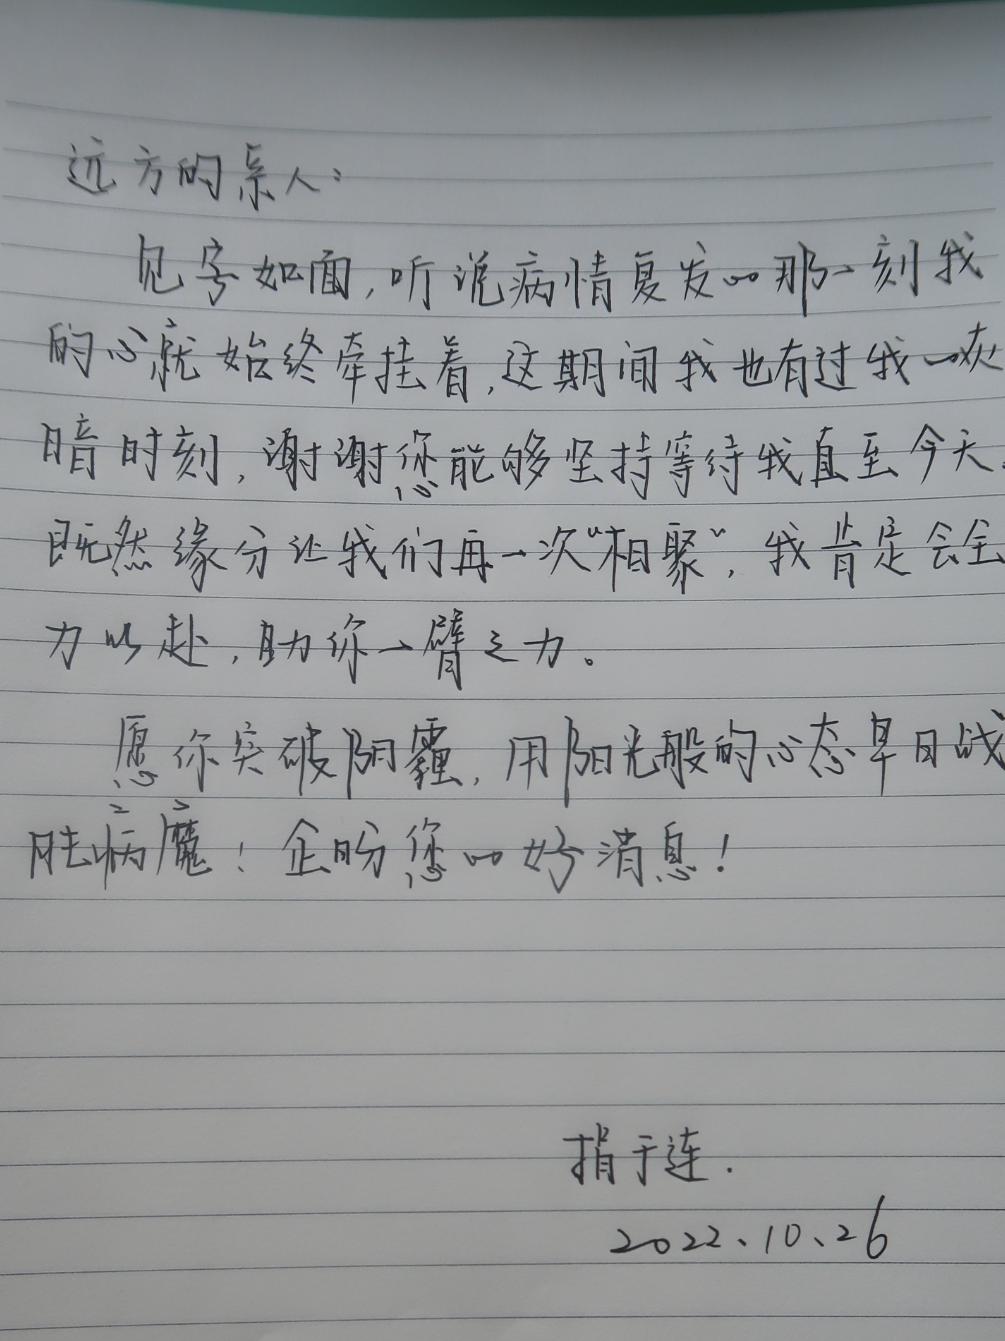 远方的亲人：
见字如面，听说病情复发的那一刻我
的心就始终牵挂着，这期间我也有过我的灰
暗时刻，谢谢您能够坚持等待我直至今天。
既然缘分让我们再一次“相聚”，我肯定会全
力以赴，助你一臂之力。
愿你突破阴霾，用阳光般的心态早日战
胜病魔！企盼您的好消息！
指于连.
2022、10、26